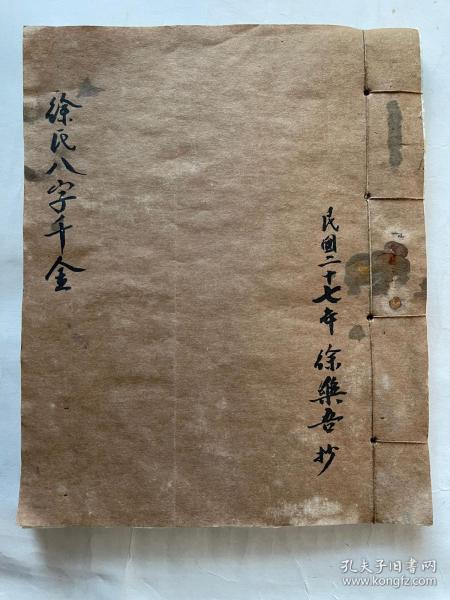 徐氏八字千金
民國二十七年 徐樂吾 抄
孔夫子旧书网
www.kongfz.com